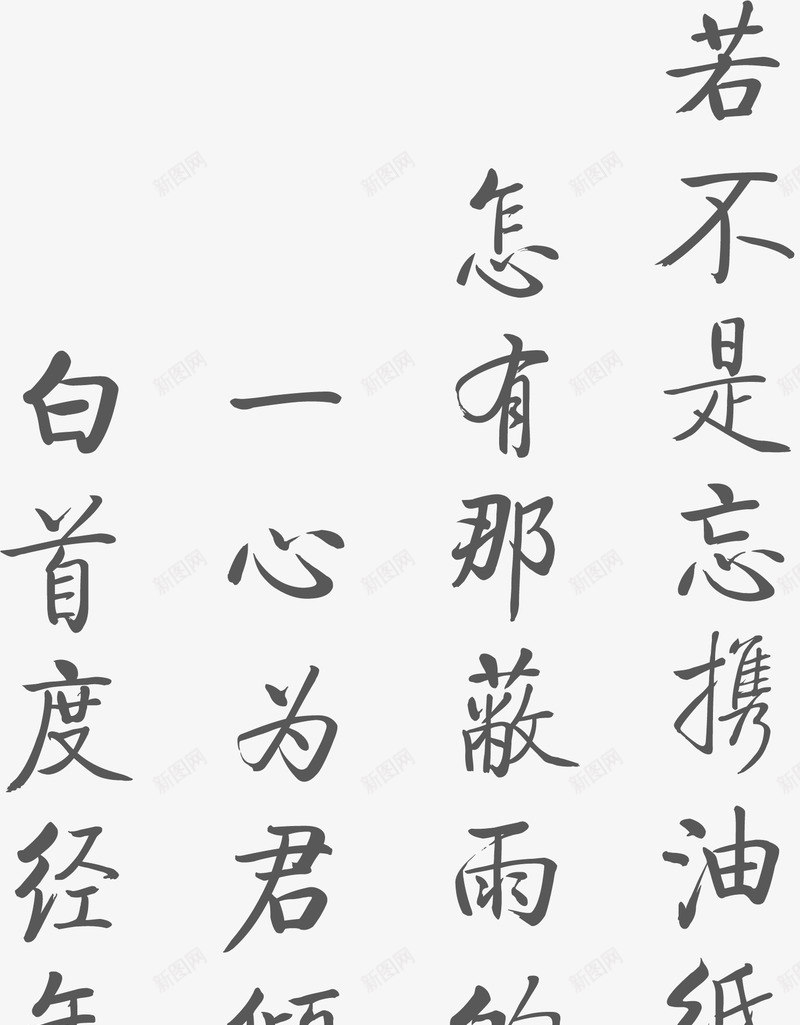 若不是忘携油纸
怎有那蔽雨的
一心为君倾
白首度经年
新图网